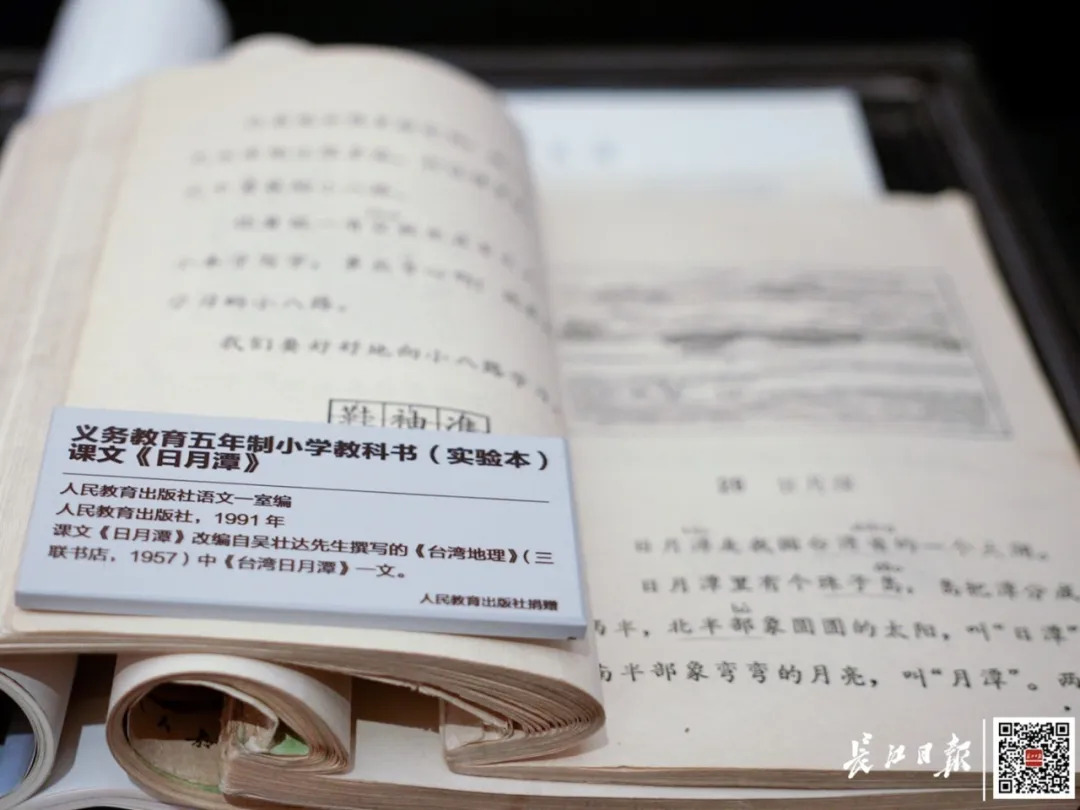 学习的小八路。
我们要好好地向小八路学习
鞋袖准
义务教育五年制小学教科书（实验本）
课文《日月潭》
人民教育出版社语文一室编
人民教育出版社，1991年
课文《日月潭》改编自吴壮达先生撰写的《台湾地理》（三
联书店，1957）中《台湾日月潭》一文。
人民教育出版社捐赠
日月潭
日月潭是我国台湾省的一个大湖。
日月潭里有个珠子岛，岛把潭分成
两半，北半部象圆圆的太阳，叫“日潭”
南半部象弯弯的月亮，叫“月潭”。两
长江日报